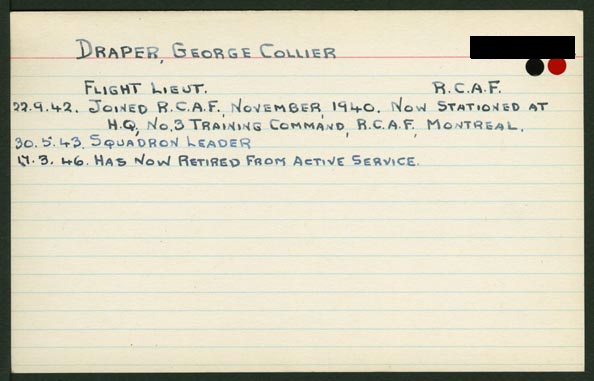 DRAPER, GEORGE COLLIER
FLIGHT LIEUT. R.C.A.F.
22.9.42. JOINED R.C.A.F., NOVEMBER, 1940. NOW STATIONED AT
H.Q., NO.3 TRAINING COMMAND, R.C.A.F., MONTREAL.
30.5.43. SQUADRON LEADER
17.3.46. HAS NOW RETIRED FROM ACTIVE SERVICE.